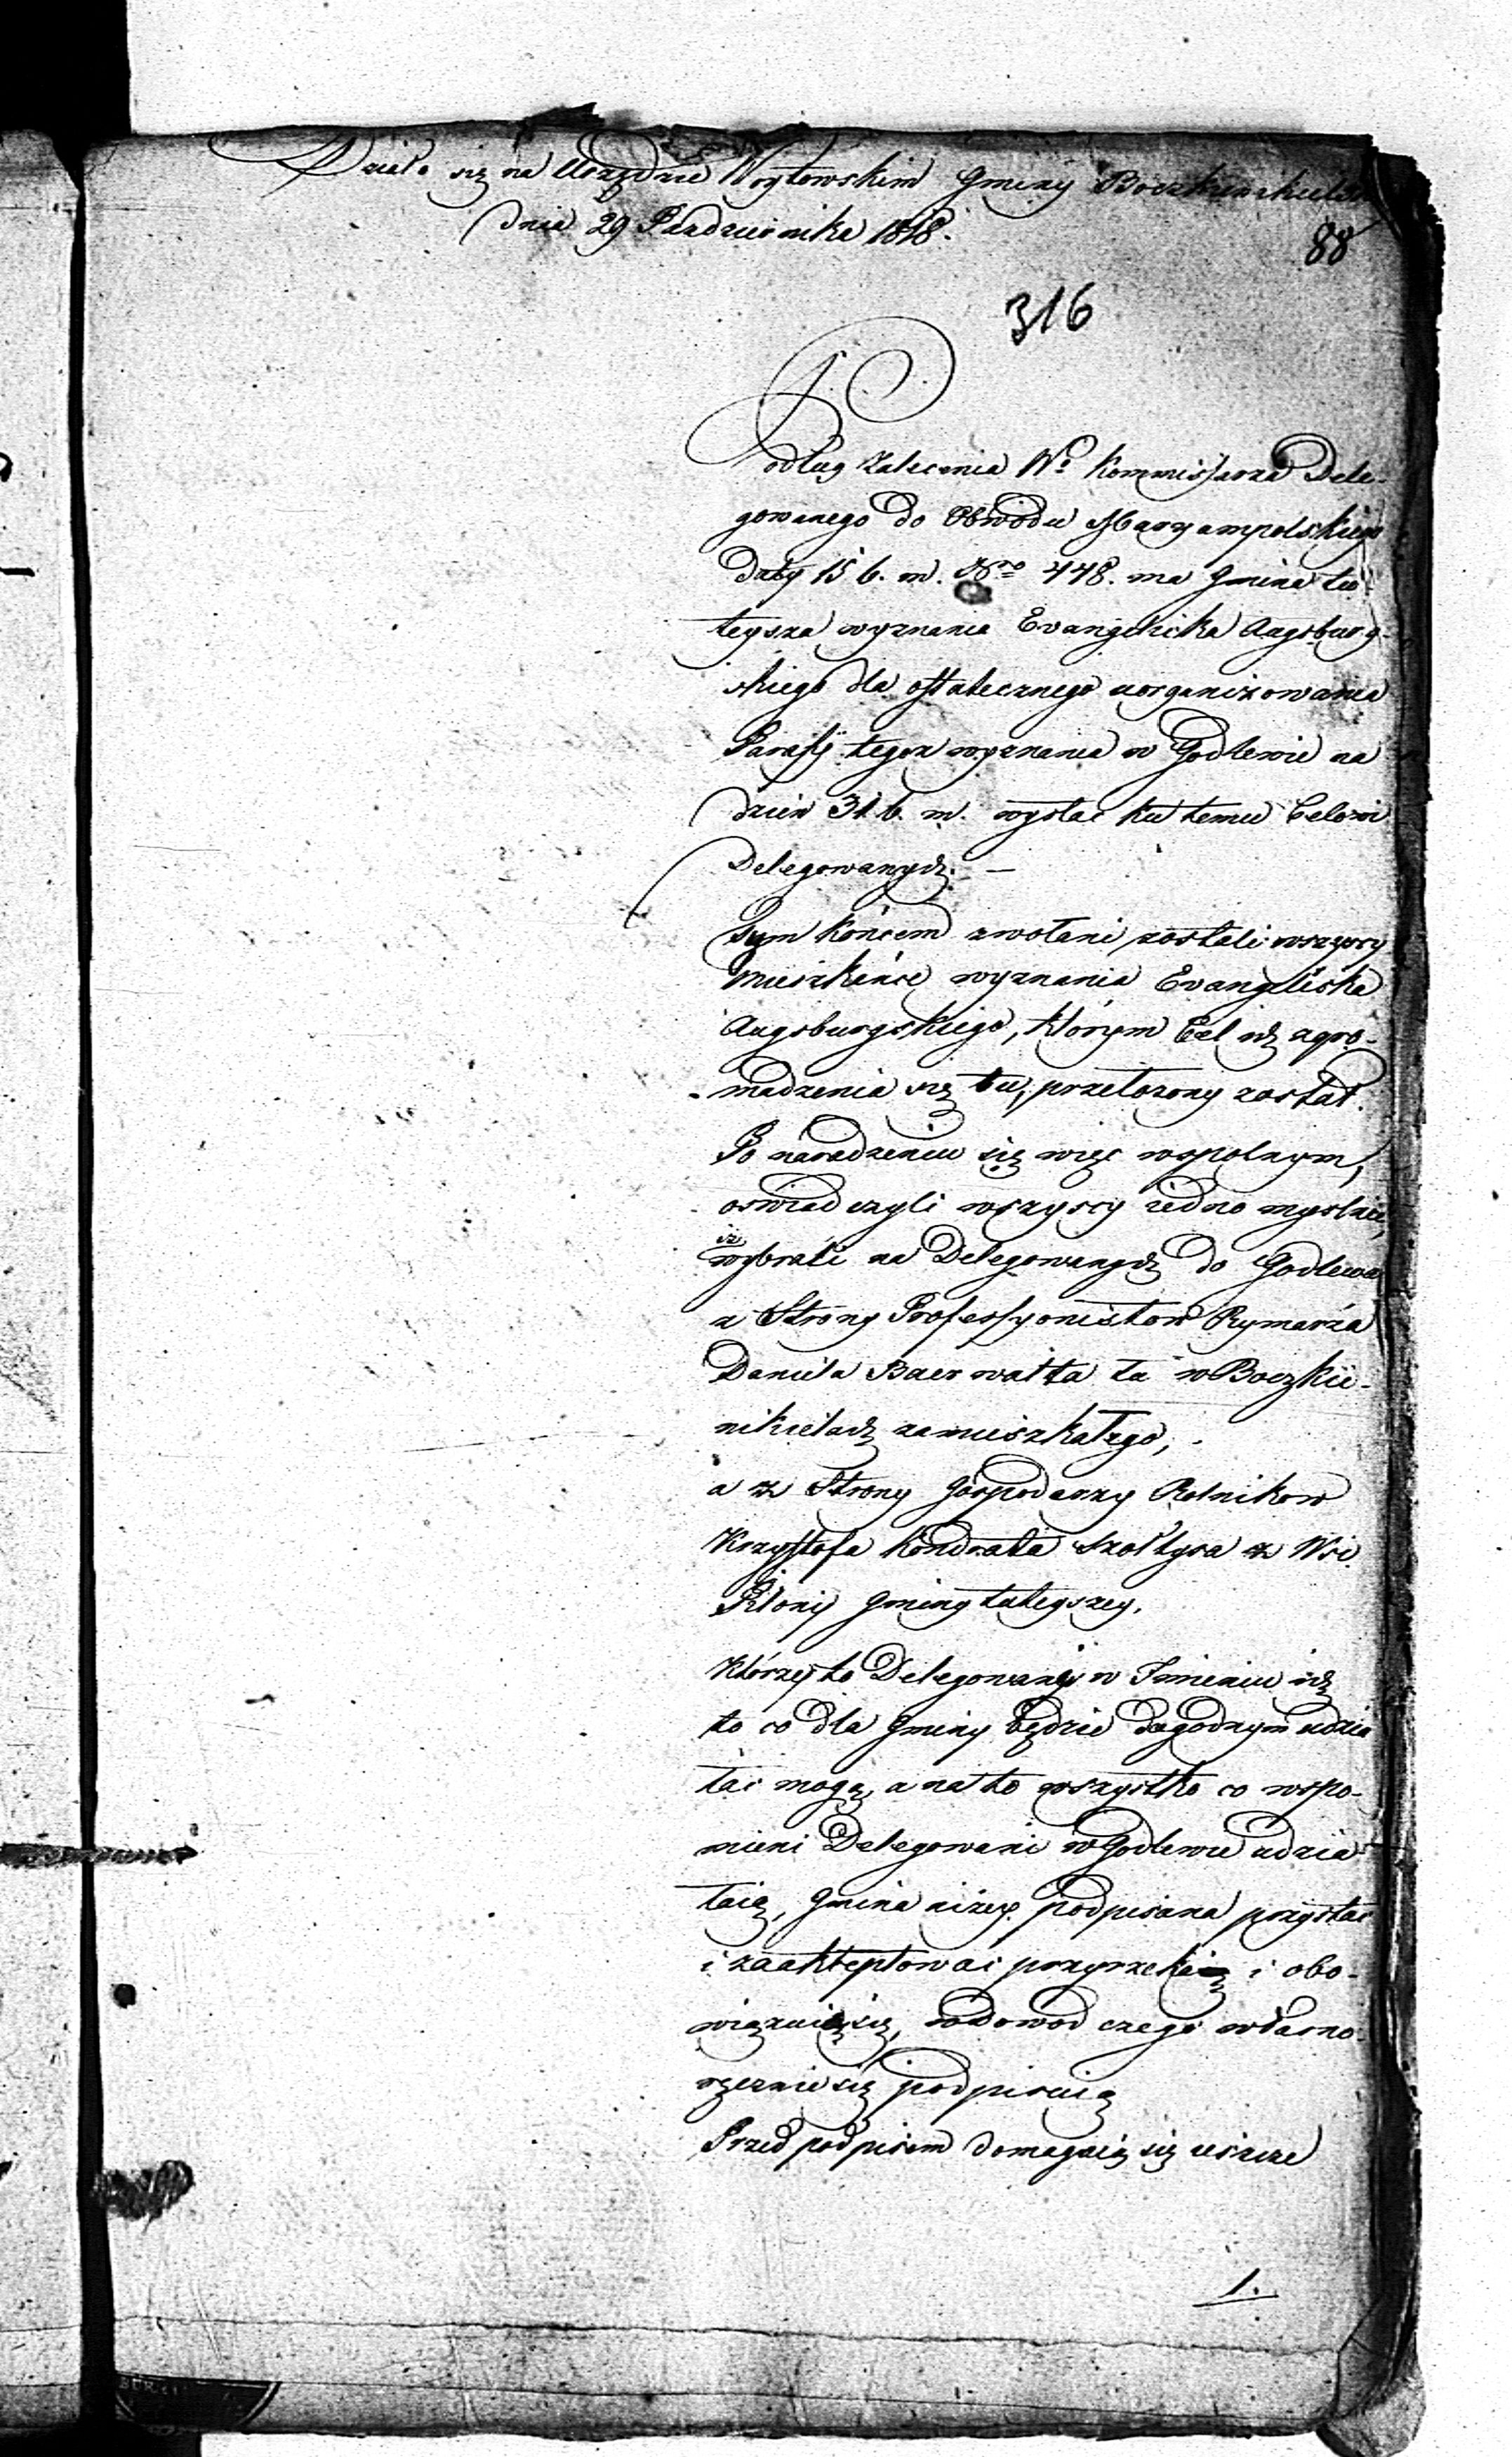 Działo się na Urzędzie Woytowskim Gminy
dnia 29 Pazdziernika 1818.
88
316
Podług Zalecenia Wo Kommissarza Dele-
gowanego do Obwodu Maryampolskiego
daty 15 b. m. Nro 448. ma Gmina tu-
teysza wyznania Evangelicka Augsburg-
skiego dla ostatecznego uorganizowania
Parafij tegoz wyznania w Godlewie na
dzien 31 b. m. wysłac ku temu Celowi
Delegowanych. —
Tym końcem zwołani zostali wszyscy
Mieszkańce wyznania Evangelicka
Augsburgskiego, którym Cel ich zgro-
madzenia się tu, przełozony został.
Po naradzeniu się więc wspolnym,
oswiadczyli wszyscy iedno myslnie,
iz
wybrali na Delegowanych do Godlewa
z Strony Professyonistow Rymarza
Daniela Baerwalta tu w Boczkie-
nikielach zamieszkałego,
a z Strony Gospodarzy Rolnikow
Krzysztofa Kondrata Szołtysa z Wsi
Gminy tuteyszey.
Którzy to Delegowani w Imieniu ich
to co dla Gminy będzie dogodnym udzia
łac mogą, a na to wszystko co wspo-
mieni Delegowani w Godlewie udzia
łaią, Gmina niżey podpisana przystac
i zaakteptowac przyrzekaią i obo-
wiązuią się, na dowod czego własno-
ręcznie się podpisuią
Przed podpisem domagaią się ieszcze
1.